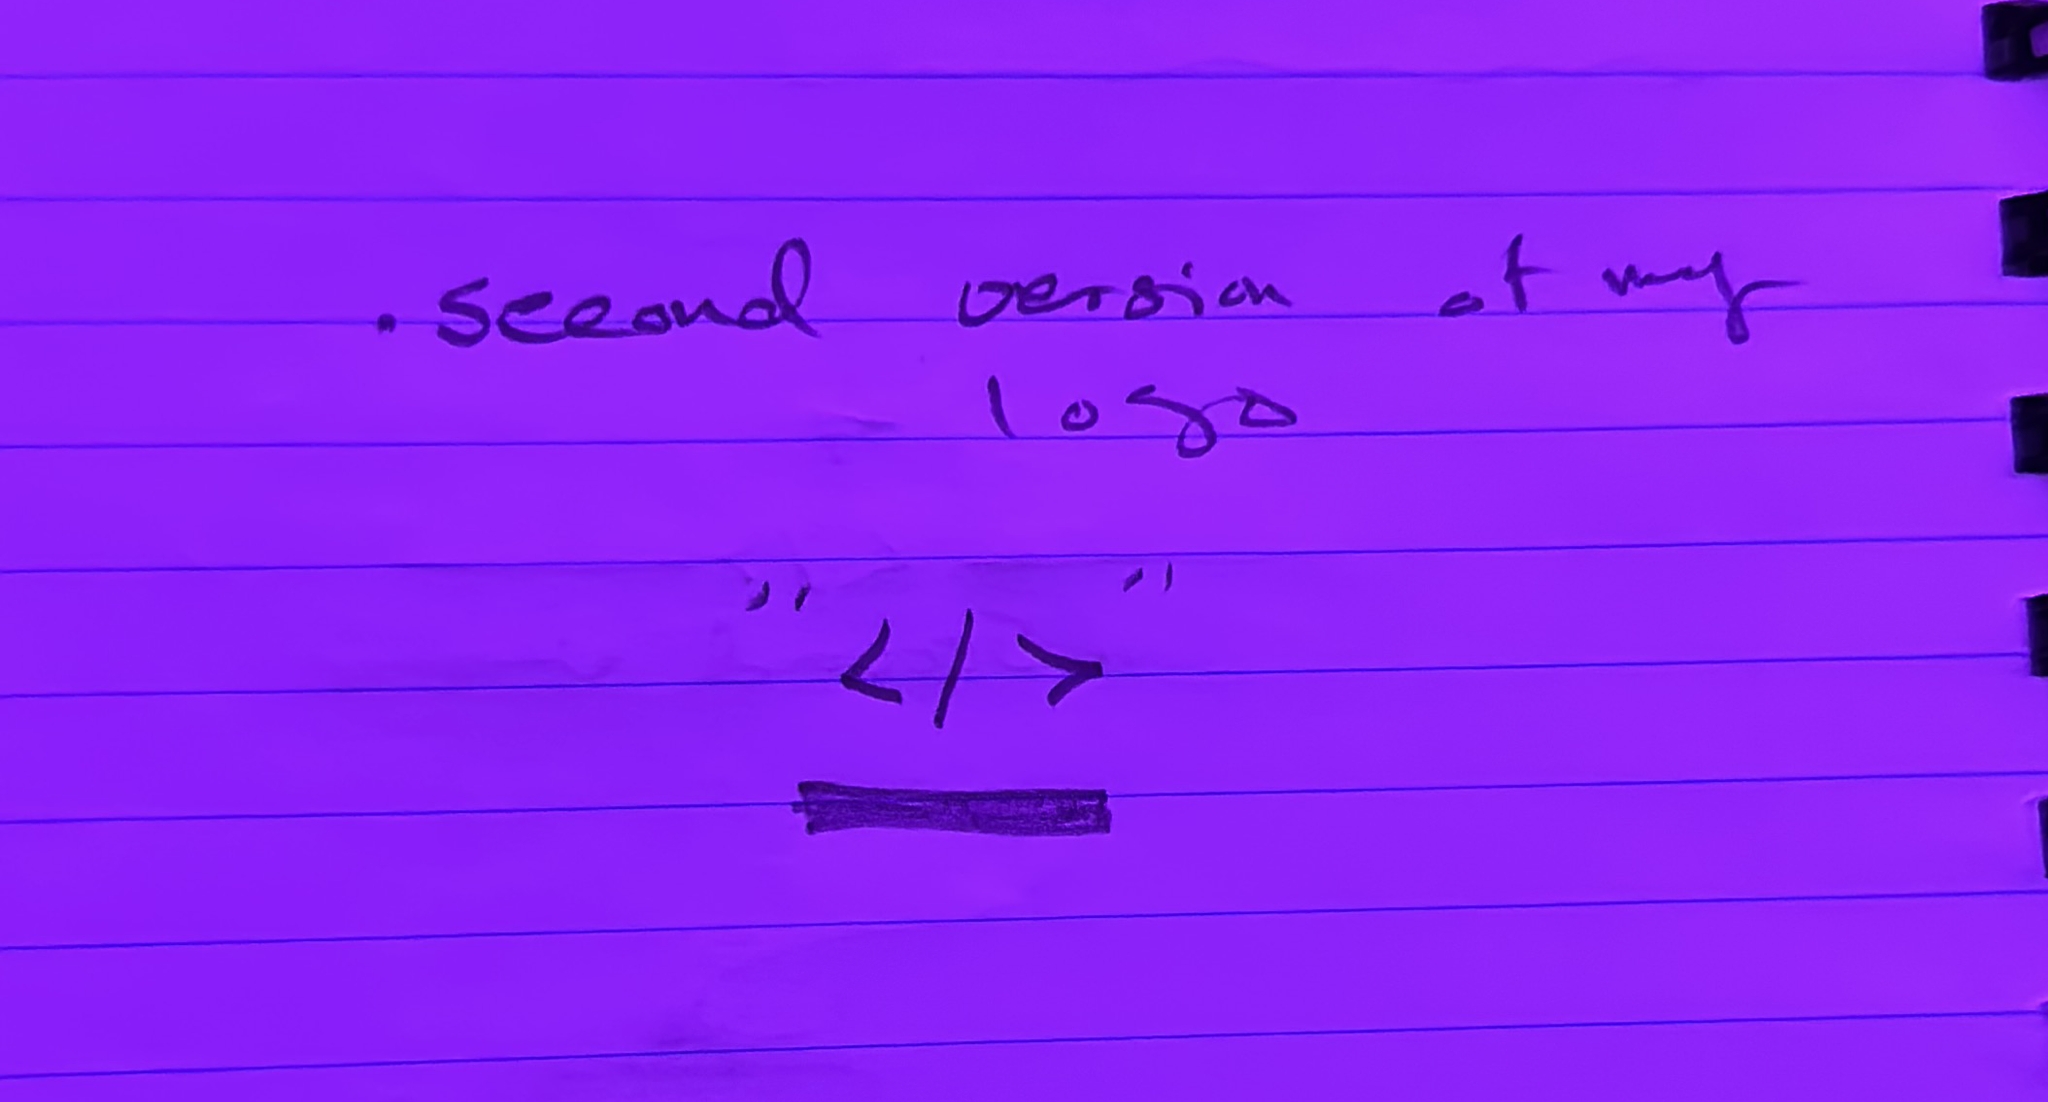 . second version of my
logo
" </> "